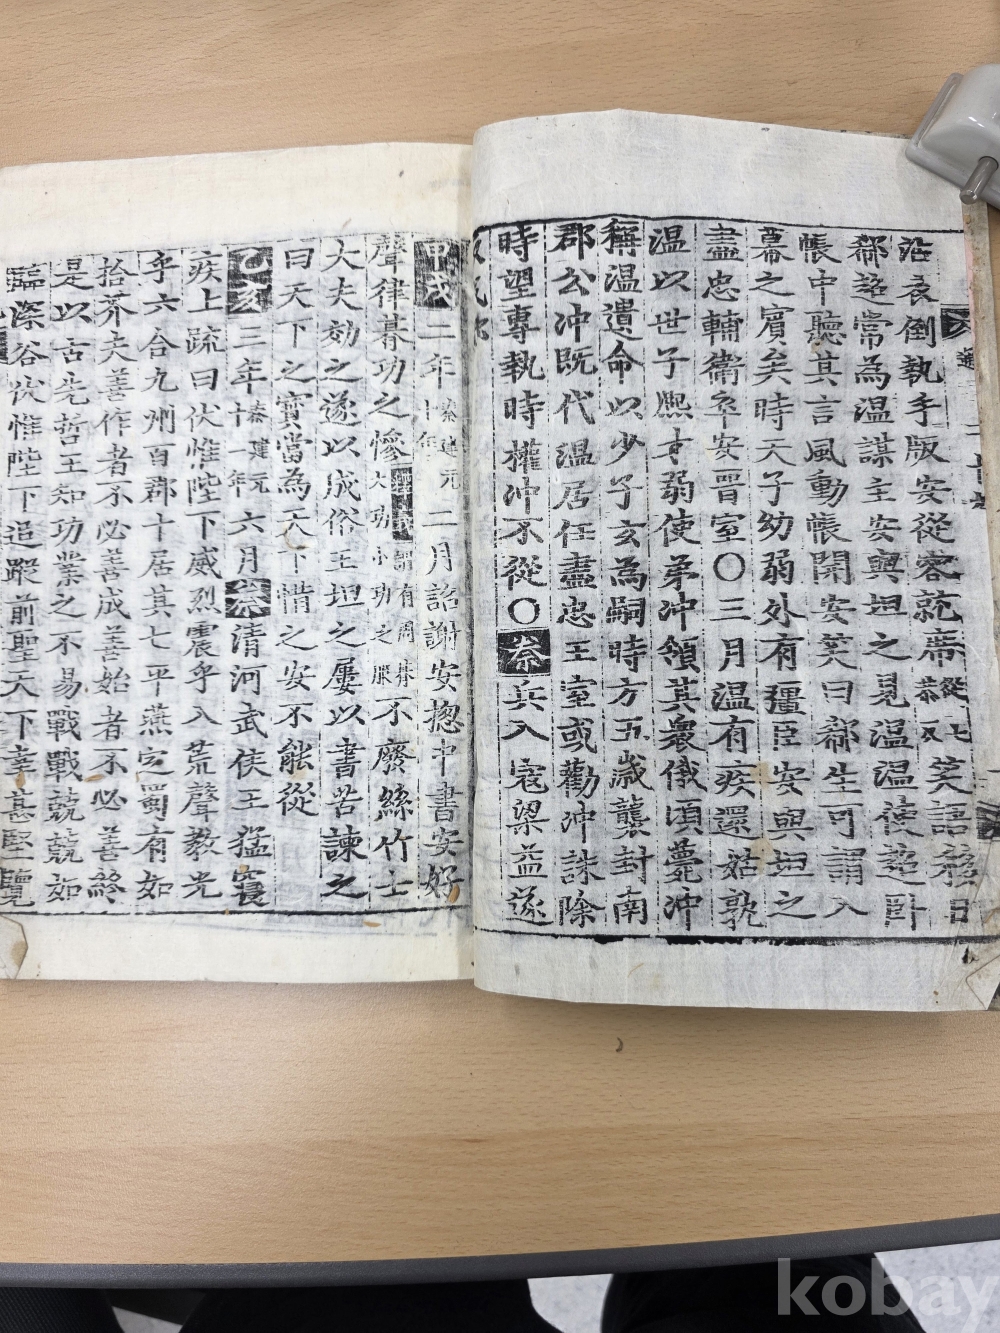 沾衣倒執手版安從容就席從七恭反笑語移日
郗超常為溫謀主安與坦之見溫溫使超卧
帳中聽其言風動帳開安笑曰郗生可謂入
幕之賓矣時天子幼弱外有彊臣安與坦之
盡忠輔衛卒安晉室〇三月溫有疾還姑孰
溫以世子熙才弱使弟沖領其衆俄頃薨沖
稱溫遺命以少子玄為嗣時方五歲襲封南
郡公沖既代溫居任盡忠王室或勸沖誅除
時望專執時權沖不從〇秦兵入寇梁益遂
甲戌二年秦建元十年二月詔謝安揔中書安好
聲律朞功之慘大功小功之服不廢絲竹士
大夫効之遂以成俗王坦之屢以書苦諫之
曰天下之寶當為天下惜之安不能從
乙亥三年秦建元十一年六月秦清河武侯王猛寢
疾上疏曰伏惟陛下威烈震乎八荒聲教光
乎六合九州百郡十居其七平燕定蜀有如
拾芥夫善作者不必善成善始者不必善終
是以古先哲王知功業之不易戰戰兢兢如
臨深谷伏惟陛下追蹤前聖天下幸甚堅覽
kobay